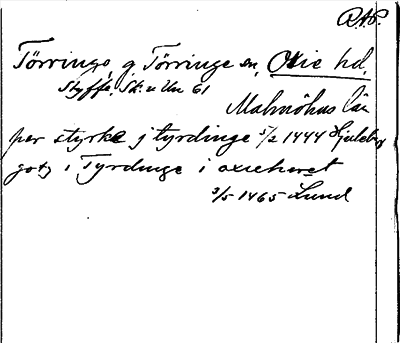 RAP.
Törringe, g Törringe sn, Oxie hd.
Styffe, Sk. u Un 61
Malmöhus län
per styrke j tyrdinge 5/2 1444 Hjuleberg
gotz i Tyrdinge i oxieheret
3/5 1465 Lund